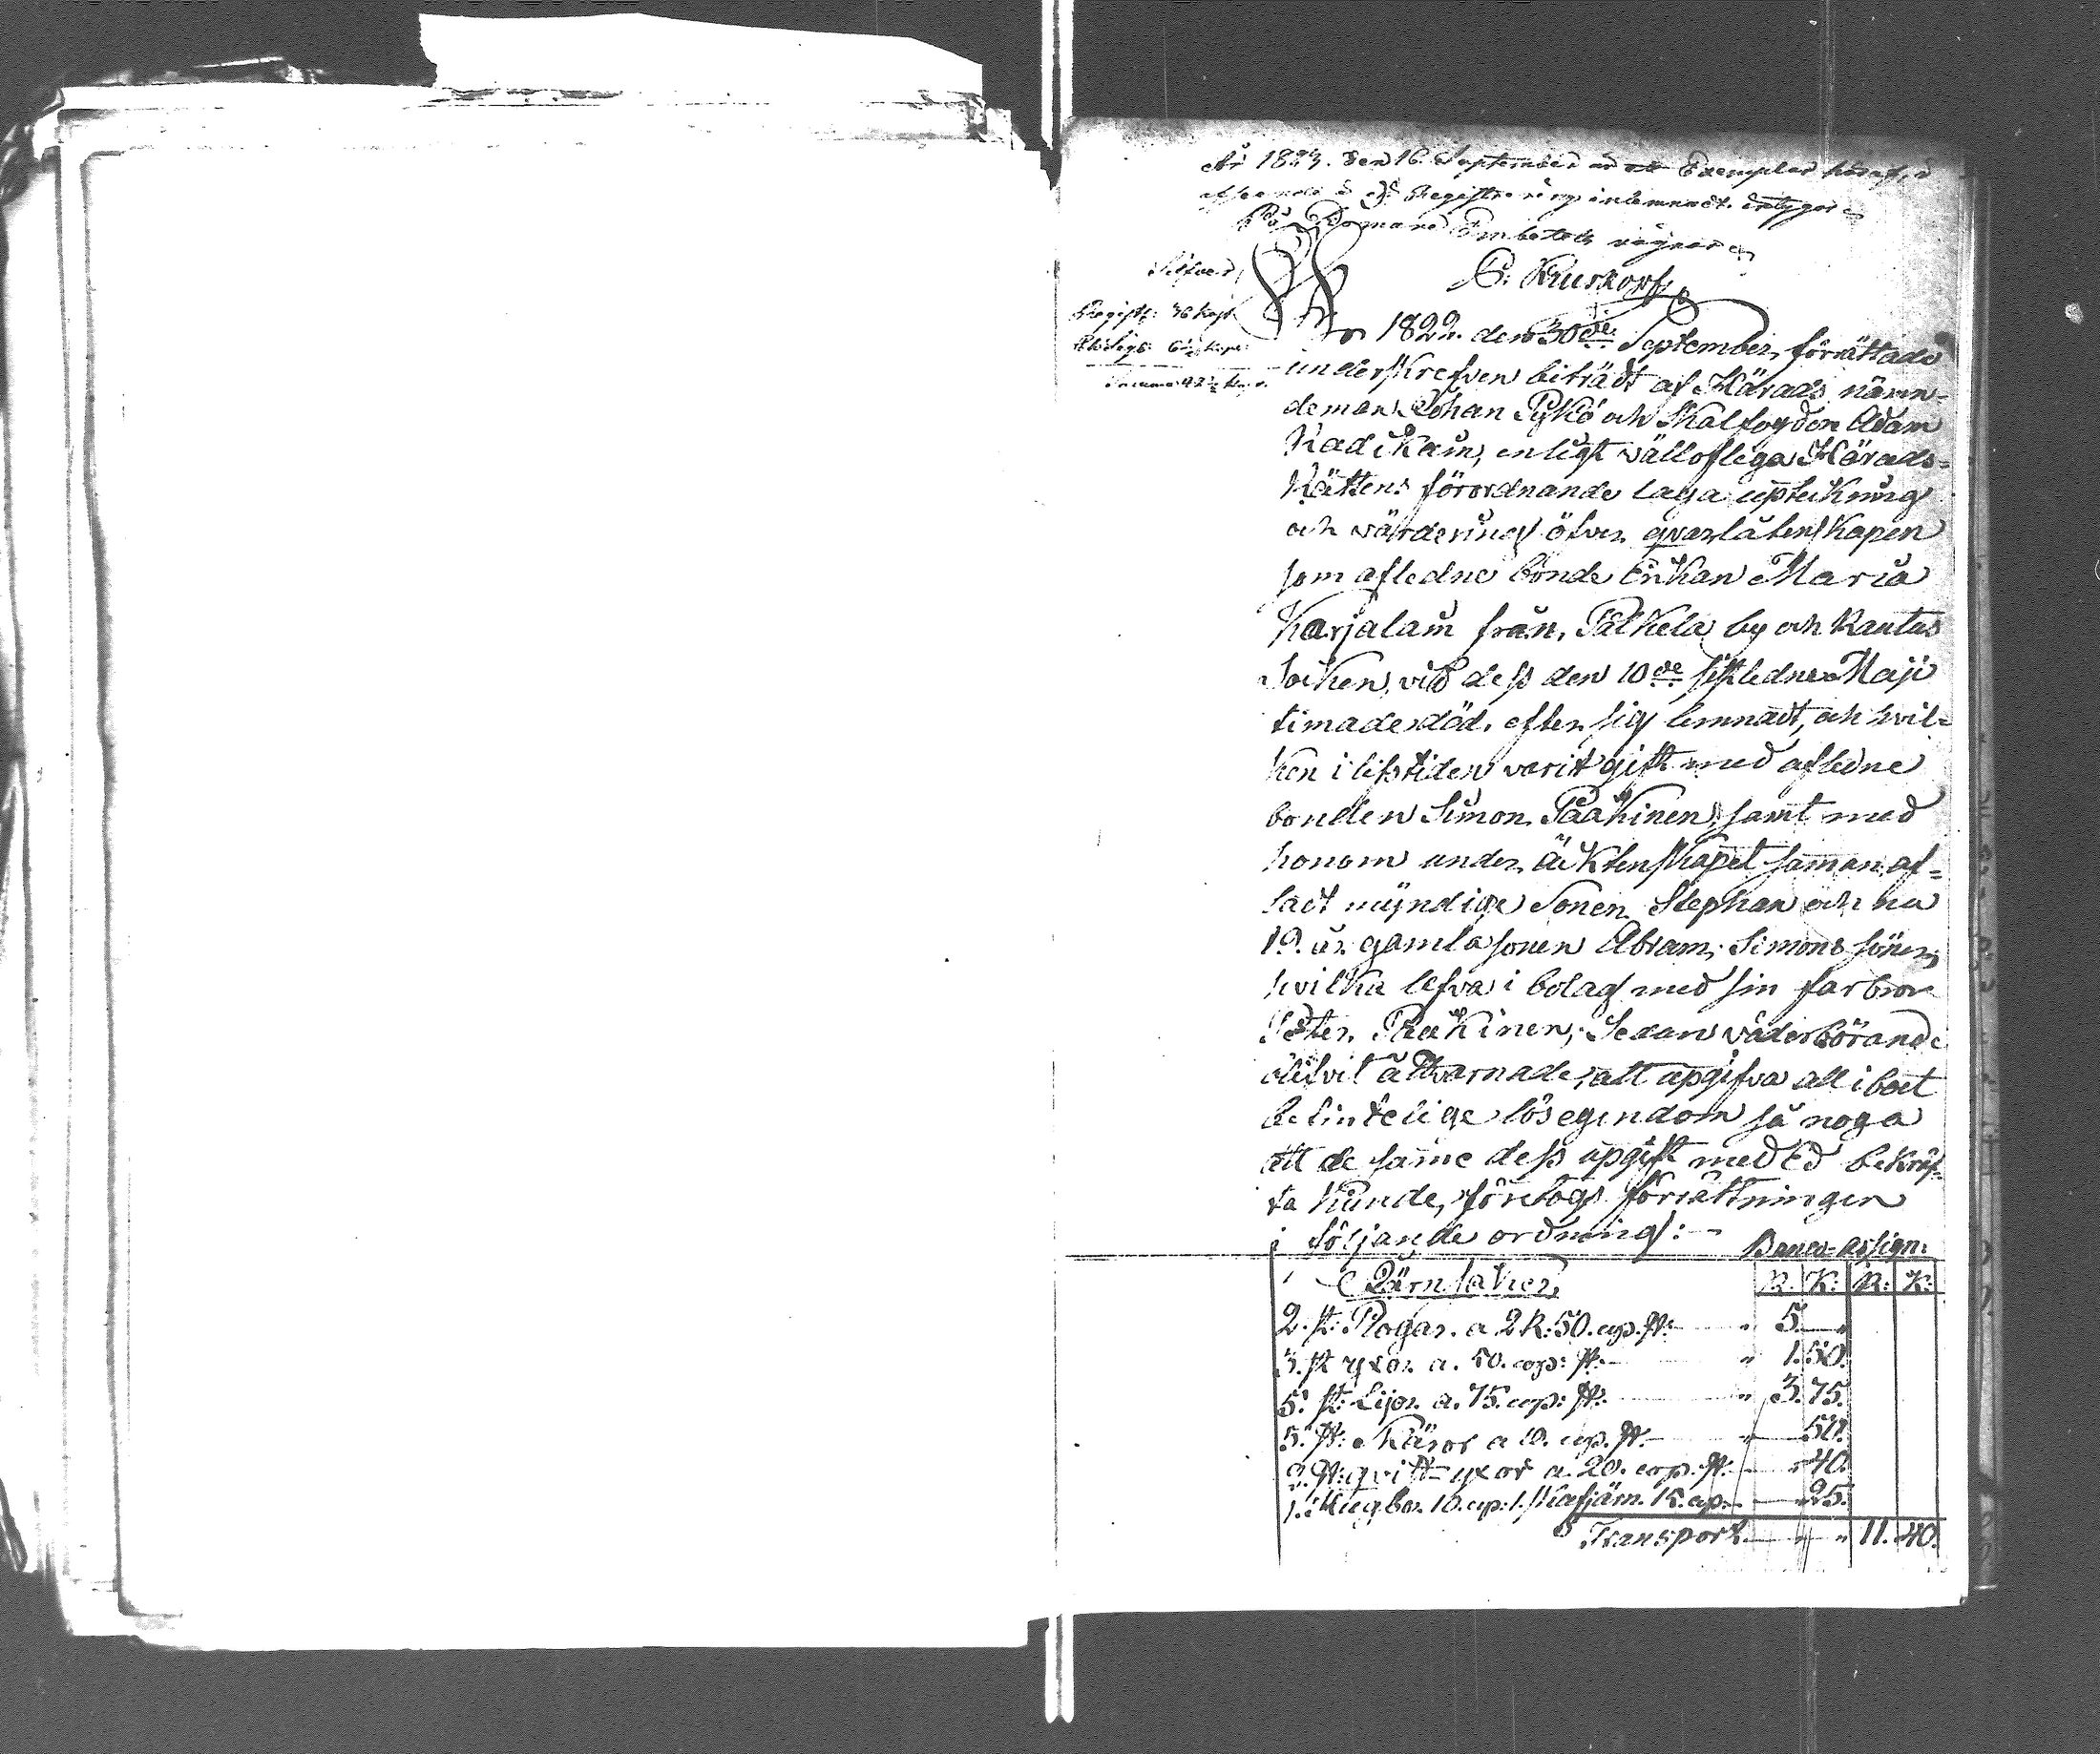 År 1823. den 16. September är ett Exemplar häraf,
till Registrering inlemnadt. intygar
På Domare Embetets vägnar
C: Kruskopf
Silfver
Registr: 36 kop
Summa 42½ kop.
År 1822. den 30de September, förrättade
underskrefven biträdt af Härads nämn=
deman Johan Pykö och Skalfogden Adam
Kadikain, enligt välloflega Härads=
Rättens förordnande laga upteckning
och värdering öfver qvarlåtenskapen
som afledne bonde Enkan Maria
Karjalain från, Palkela by och Rautus
Socken, vid dess den 10de sistledne Maji
timade död, efter sig lemnadt, och hvil=
ken i lifstiden varit gift med afledne
bonden Simon Paakinen, samt med
honom under äcktenskapet samman af=
ladt myndige Sonen Stephan och nu
19. år gamla sonen Abram, Simons söner,
hvilka lefva i bolag med sin farbror
Peter Paakinen; Sedan vederbörande
blifvit åtvarnade, att upgifva all i boet
befintelige lösegendom så noga
att de samme dess upgift med Ed bekräf=
ta kunde, företogs förrättningen
i följande ordning:
Banco-assign:
Järnsaker R. K: R: K:
2. st: Plogar. a 2 R: 50. cop. st: " 5. "
3. st yxor a. 50. cop: st: " 1. 50.
5. st: Lijor. a. 75. cop: st: " 3. 75.
5. st: Skäror a 10. cop. st. " 50.
2. st: qvist-yxor a. 20. cop. st. " 40.
1. 10. cop: 1. 15. cop. " 25.
Transport " " 11. 40.